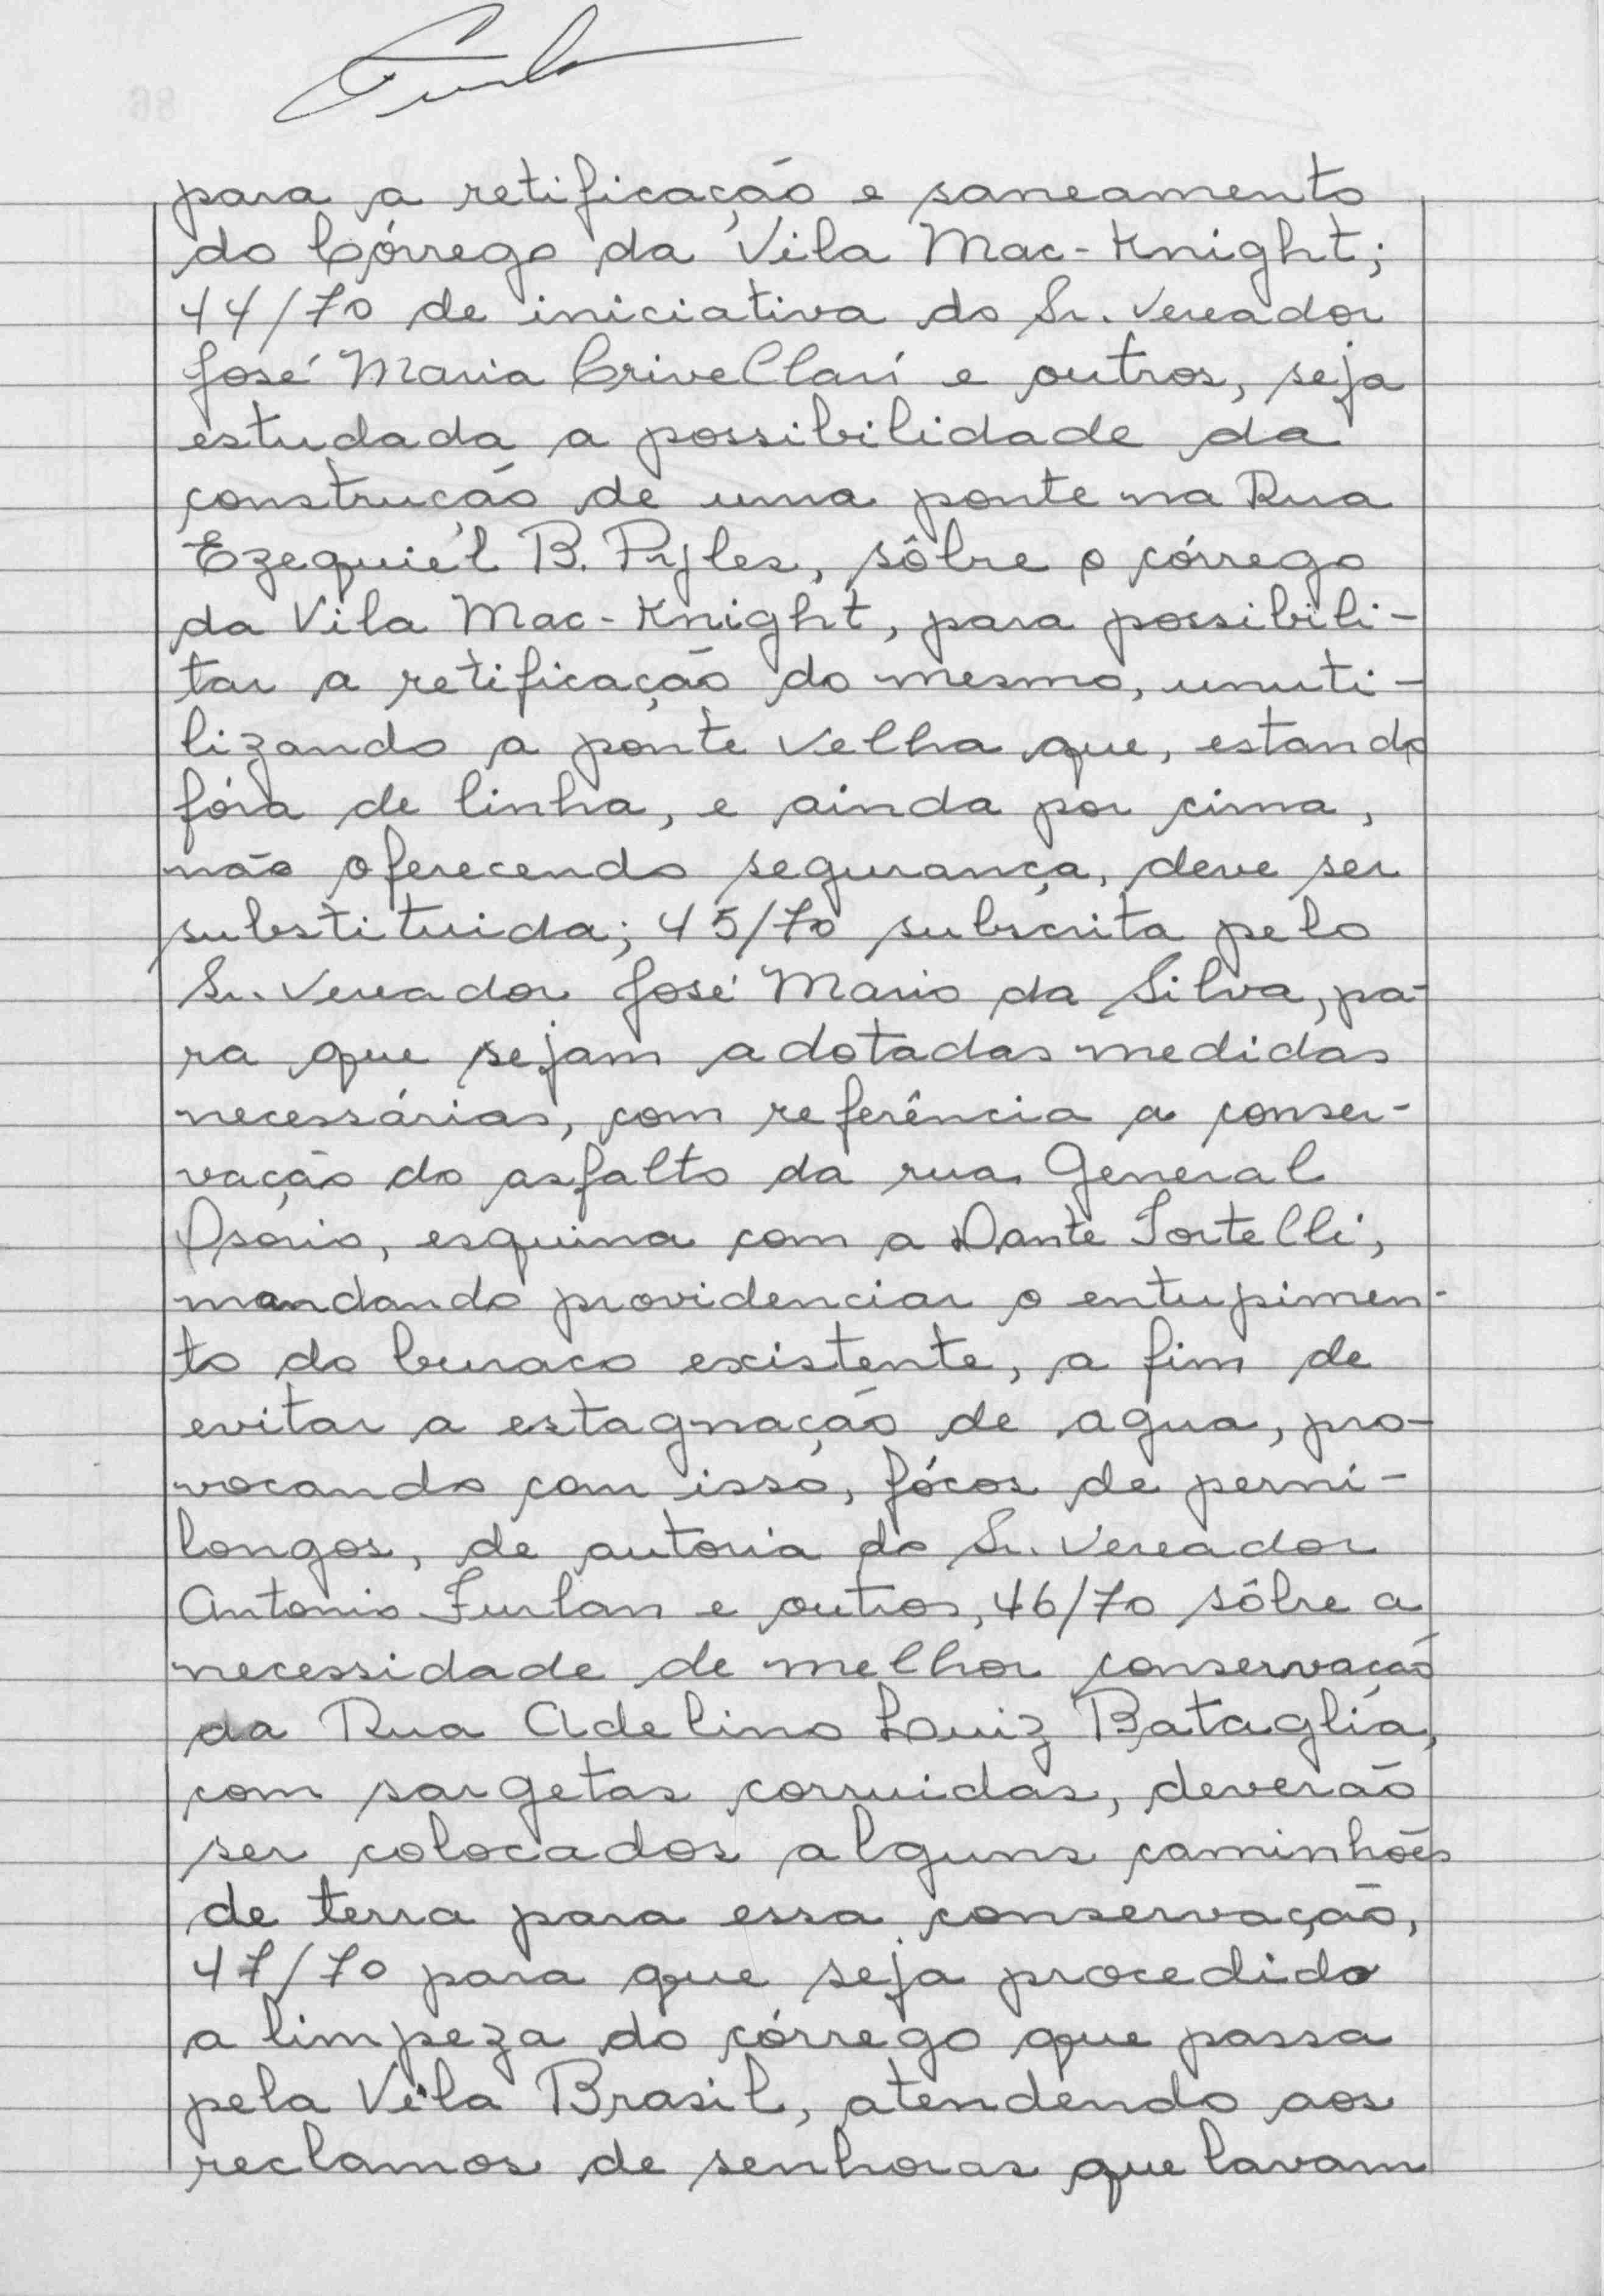 para a retificação e saneamento
do Córrego da Vila Mac-Knight;
44/70 de iniciativa do Sr. Vereador
José Maria Crivellari e outros, seja
estudada a possibilidade da
construcão de uma ponte na Rua
Ezequiél B. Pyles, sôbre o córrego
da Vila Mac-Knight, para possibili-
tar a retificação do mesmo, unuti-
lizando a ponte velha que, estando
fóra de linha, e ainda por cima,
não oferecendo segurança, deve ser
substituida; 45/70 subscrita pelo
Sr. Vereador José Mario da Silva, pa-
ra que sejam adotadas medidas
necessárias, com referência a conser-
vação do asfalto da rua General
Osório, esquina com a Dante Tortelli,
mandando providenciar o entupimen-
to do buraco existente, a fim de
evitar a estagnação de agua, pro-
vocando com isso, fócos de perni-
longos, de autoria do Sr. Vereador
Antonio Furlan e outros, 46/70 sôbre a
necessidade de melhor conservação
da Rua Adelino Luiz Bataglia,
com sargetas corruidas, deverão
ser colocados alguns caminhões
de terra para essa conservação,
47/70 para que seja procedido
a limpeza do córrego que passa
pela Vila Brasil, atendendo aos
reclamos de senhoras que lavam